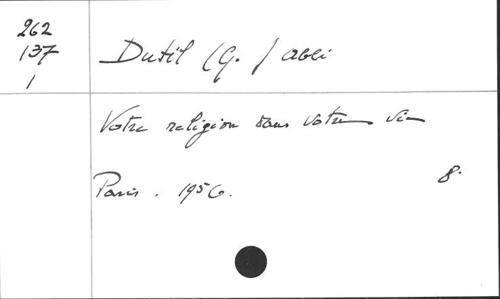 262
137
1
Dutil (G.) abbé
Votre religion dans votre vie
Paris. 1956.
8.